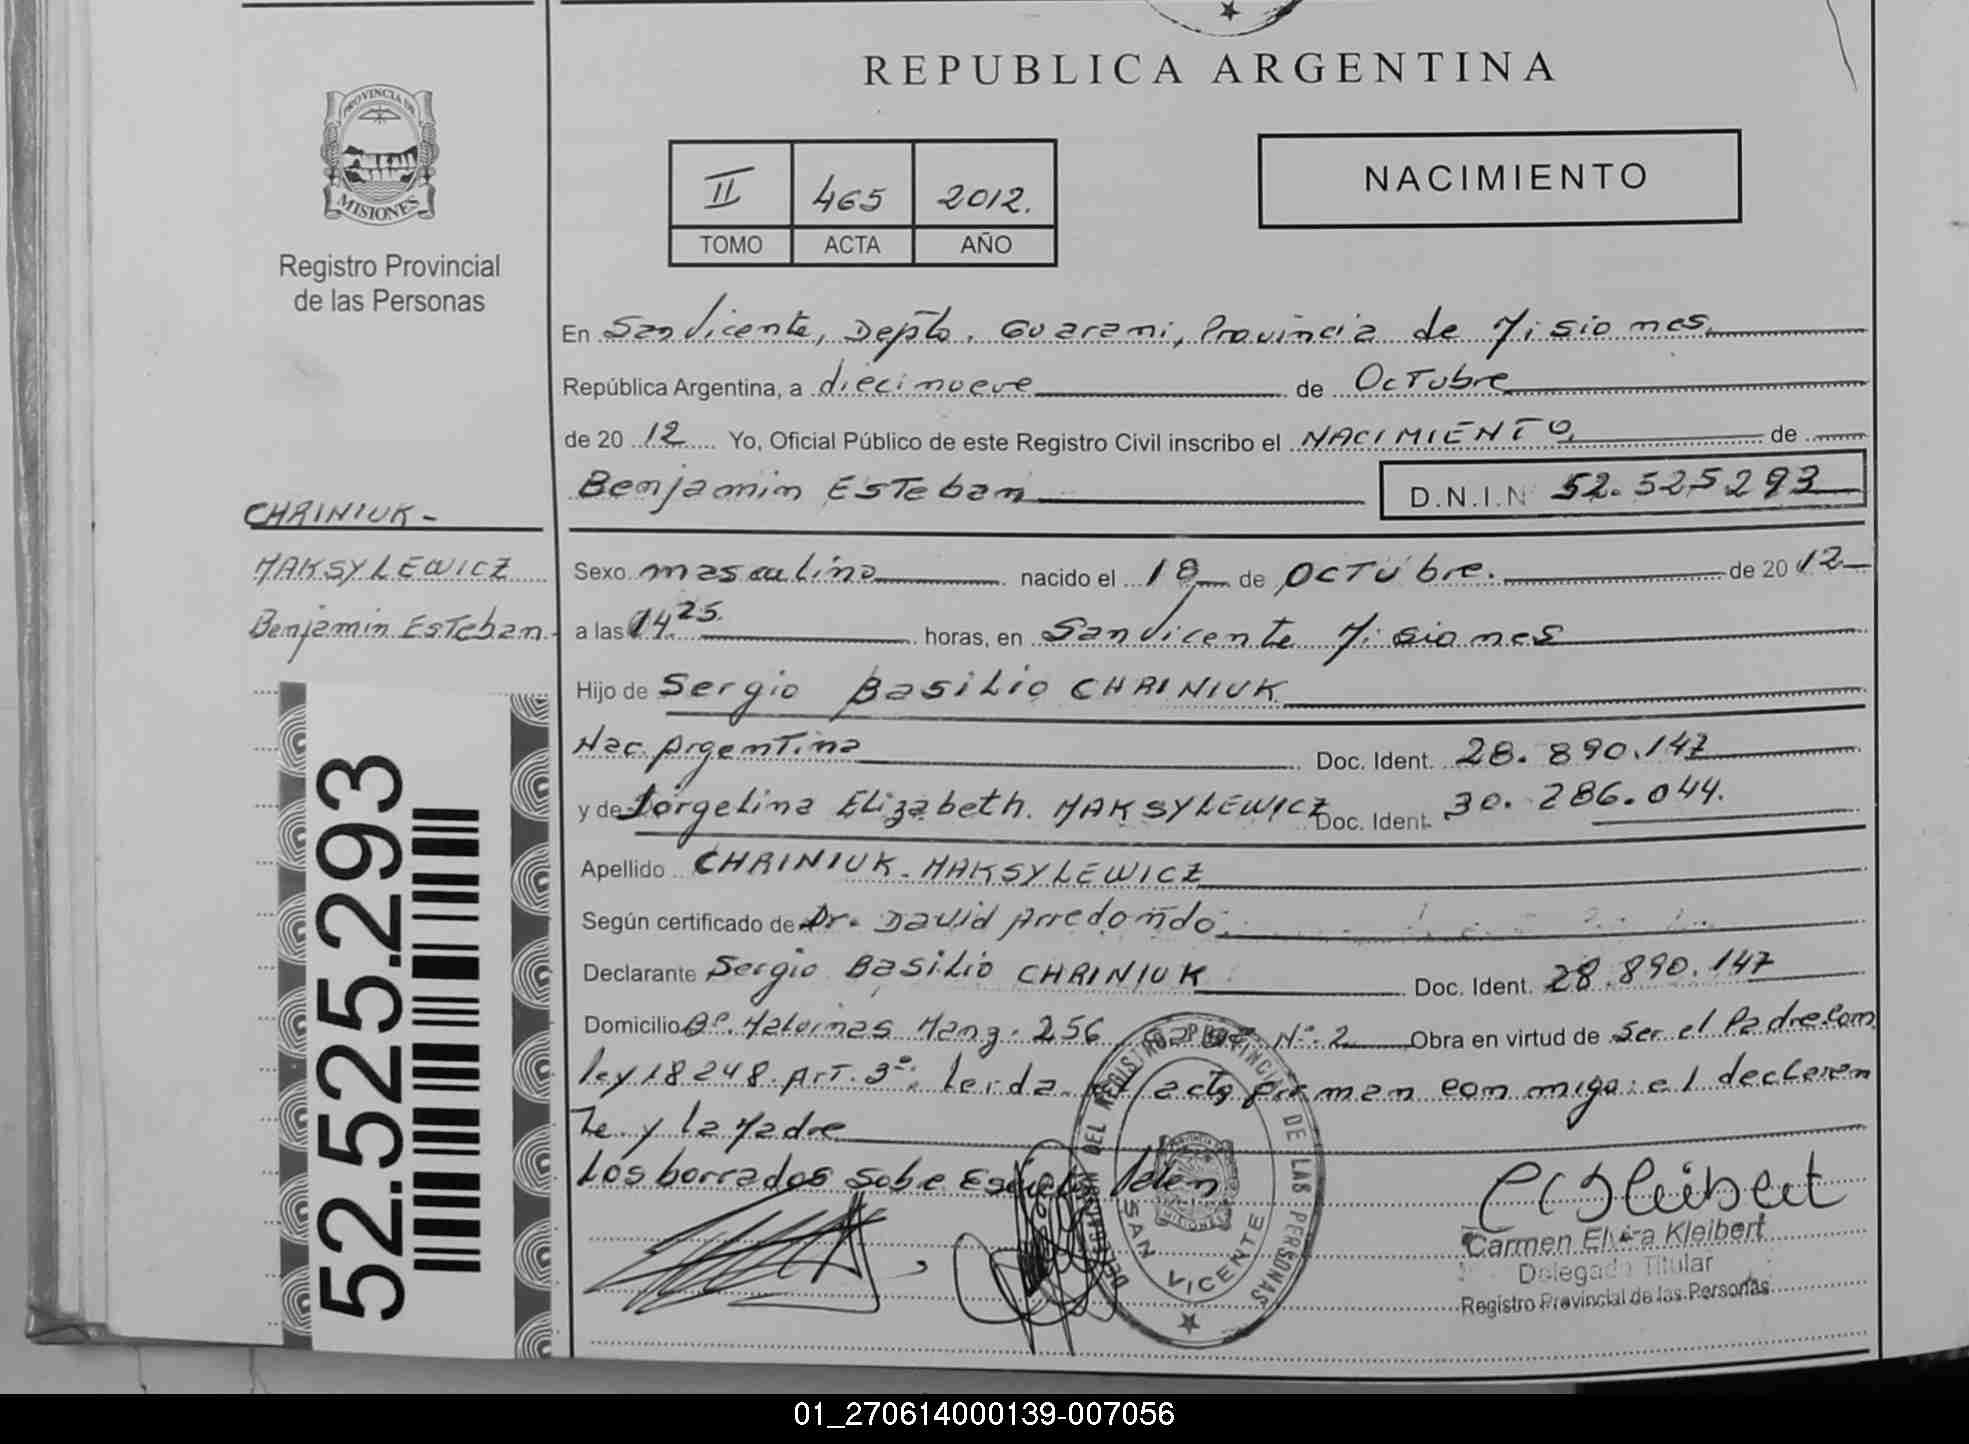 REPUBLICA ARGENTINA
PROVINCIA DE
MISIONES
Registro Provincial
de las Personas
II 465 2012.
TOMO ACTA AÑO
NACIMIENTO
En San Vicente, Depto. Guarani, Provincia de Misiones
República Argentina, a diecinueve de Octubre
de 20 12 Yo, Oficial Público de este Registro Civil inscribo el NACIMIENTO de
Benjamin Esteban D.N.I.N 52.525293
CHRINIUK-
MAKSYLEWICZ
Benjamin Esteban
52.525.293
Sexo masculino nacido el 18 de OCTUbre. de 20 12
a las 14 25. horas, en San Vicente Misiones
Hijo de Sergio Basilio CHRINIUK
Nac. Argentina Doc. Ident. 28.890.147
y de Jorgelina Elizabeth. MAKSYLEWICZ Doc. Ident. 30.286.044.
Apellido CHRINIUK-MAKSYLEWICZ
Según certificado de Dr. David Arredondo
Declarante Sergio Basilio CHRINIUK Doc. Ident. 28.890.147
Domicilio Bº. Malvinas Manz. 256 Nº 2 Obra en virtud de ser el Padre Com
ley 18248 ArT. 3º: leida el acta firman conmigo: el declaran
Te y la Madre
Los borrados sobe Valen
DELEGACION DEL REGISTRO PROVINCIAL DE LAS PERSONAS
SAN VICENTE
PROVINCIA DE
MISIONES
C Kleibert
Carmen Elvira Kleibert
Delegada Titular
Registro Provincial de las Personas
01_270614000139-007056